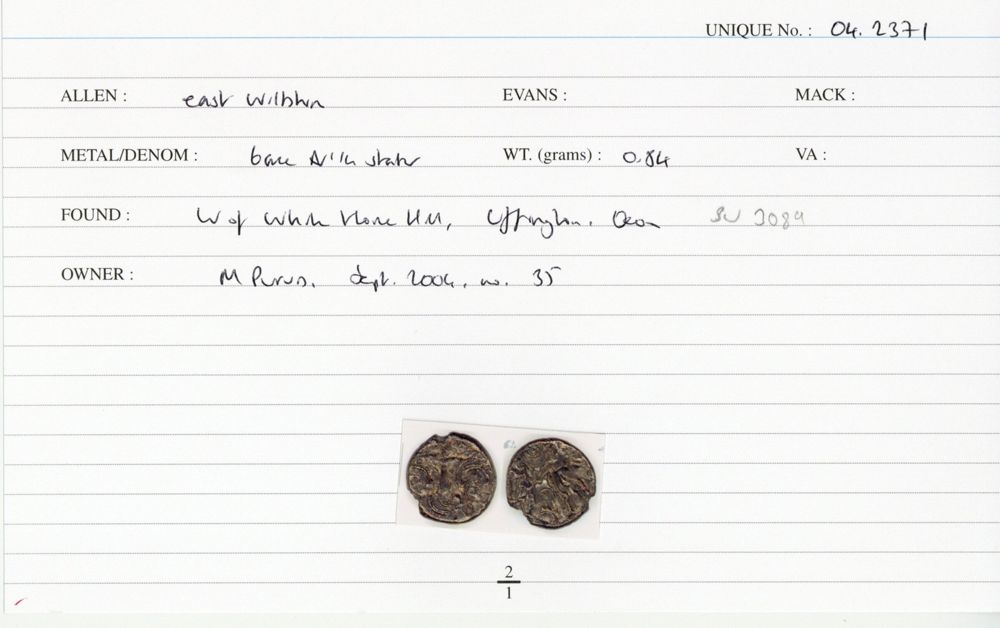 UNIQUE No. : 04. 2371
ALLEN : east Wiltshire EVANS : MACK :
METAL/DENOM : base AR 1/4 stater WT. (grams) : 0.84 VA :
FOUND : W of White Horse Hill, Uffington, Oxon SU 3089
OWNER : M Purvis, Sept. 2004, no. 35
2
1